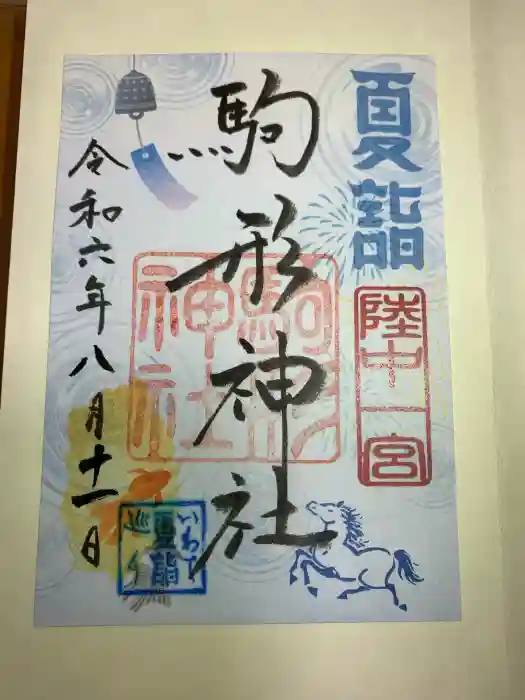 夏詣
陸中一宮
駒形神社
駒形神社
令和六年八月十一日
いわて
夏詣
巡り